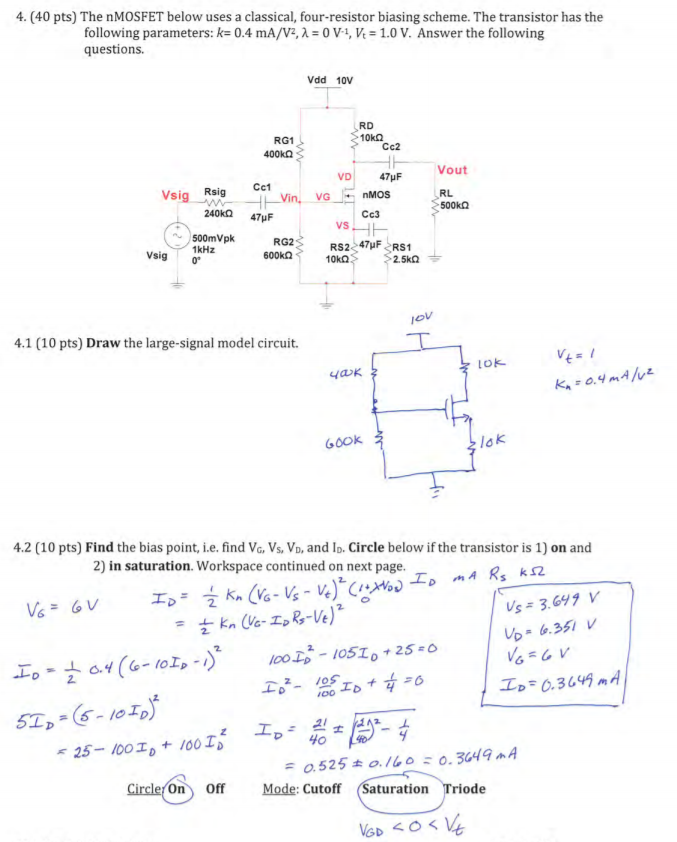 4. (40 pts) The nMOSFET below uses a classical, four-resistor biasing scheme. The transistor has the
following parameters: k= 0.4 mA/V², λ = 0 V⁻¹, Vt = 1.0 V. Answer the following
questions.
Vdd 10V
RD
10kΩ
RG1
400kΩ
Cc2
47µF
Vout
VD
Vsig
Rsig
240kΩ
Cc1
47µF
Vin
VG
nMOS
RL
500kΩ
VS
Cc3
47µF
Vsig
500mVpk
1kHz
0°
RG2
600kΩ
RS2
10kΩ
RS1
2.5kΩ
4.1 (10 pts) Draw the large-signal model circuit.
10V
400K
10K
600K
10K
Vt = 1
Kn = 0.4 mA/V²
4.2 (10 pts) Find the bias point, i.e. find VG, VS, VD, and ID. Circle below if the transistor is 1) on and
2) in saturation. Workspace continued on next page.
ID mA RS KΩ
VG = 6V
ID = 1/2 Kn (VG - VS - Vt)² (1+λVDS)
0
= 1/2 Kn (VG - ID RS - Vt)²
ID = 1/2 0.4 (6 - 10ID - 1)²
5ID = (5 - 10ID)²
= 25 - 100ID + 100ID²
100ID² - 105ID + 25 = 0
ID² - 105/100 ID + 1/4 = 0
ID = 21/40 ± √((21/40)² - 1/4)
= 0.525 ± 0.160 = 0.3649 mA
VS = 3.649 V
VD = 6.351 V
VG = 6 V
ID = 0.3649 mA
Circle: On Off Mode: Cutoff Saturation Triode
VGD < 0 < Vt